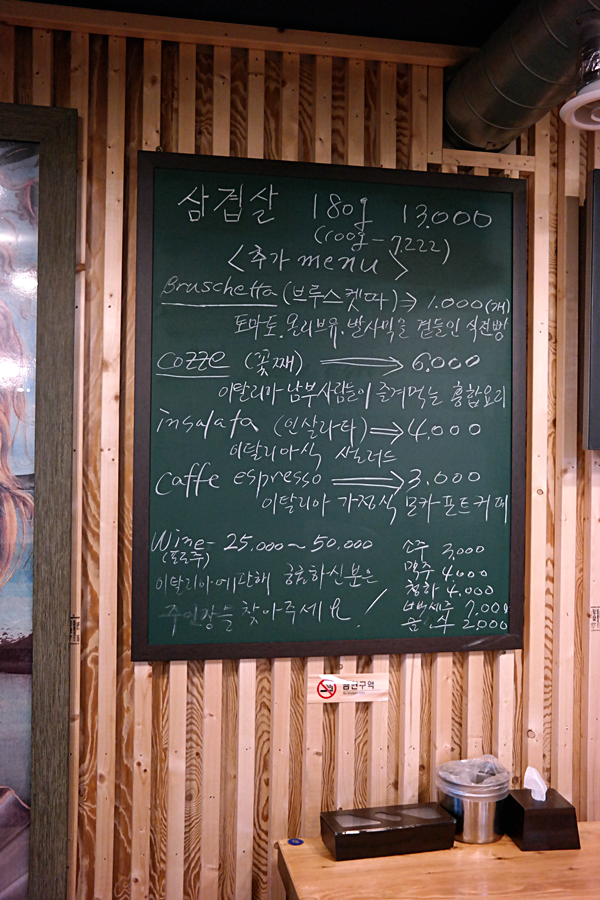 삼겹살 180g 13.000
(100g - 7.222)
<추가 menu>
Bruschetta (브루스켓따) ⇒ 1.000(개)
토마토.올리브유.발사믹을 곁들인 식전빵
cozze (꼬째) ⇒ 6.000
이탈리아 남부사람들이 즐겨먹는 홍합요리
insalata (인살라타) ⇒ 4.000
이탈리아식 샐러드
caffe espresso ⇒ 3.000
이탈리아 가정식 모카포트커피
Wine - 25.000 ~ 50.000
(포도주)
이탈리아에관해 궁금하신분은
주인장을 찾아주세요!
소주 3,000
맥주 4,000
청하 4,000
백세주 7,000
음료수 2,000
금연구역